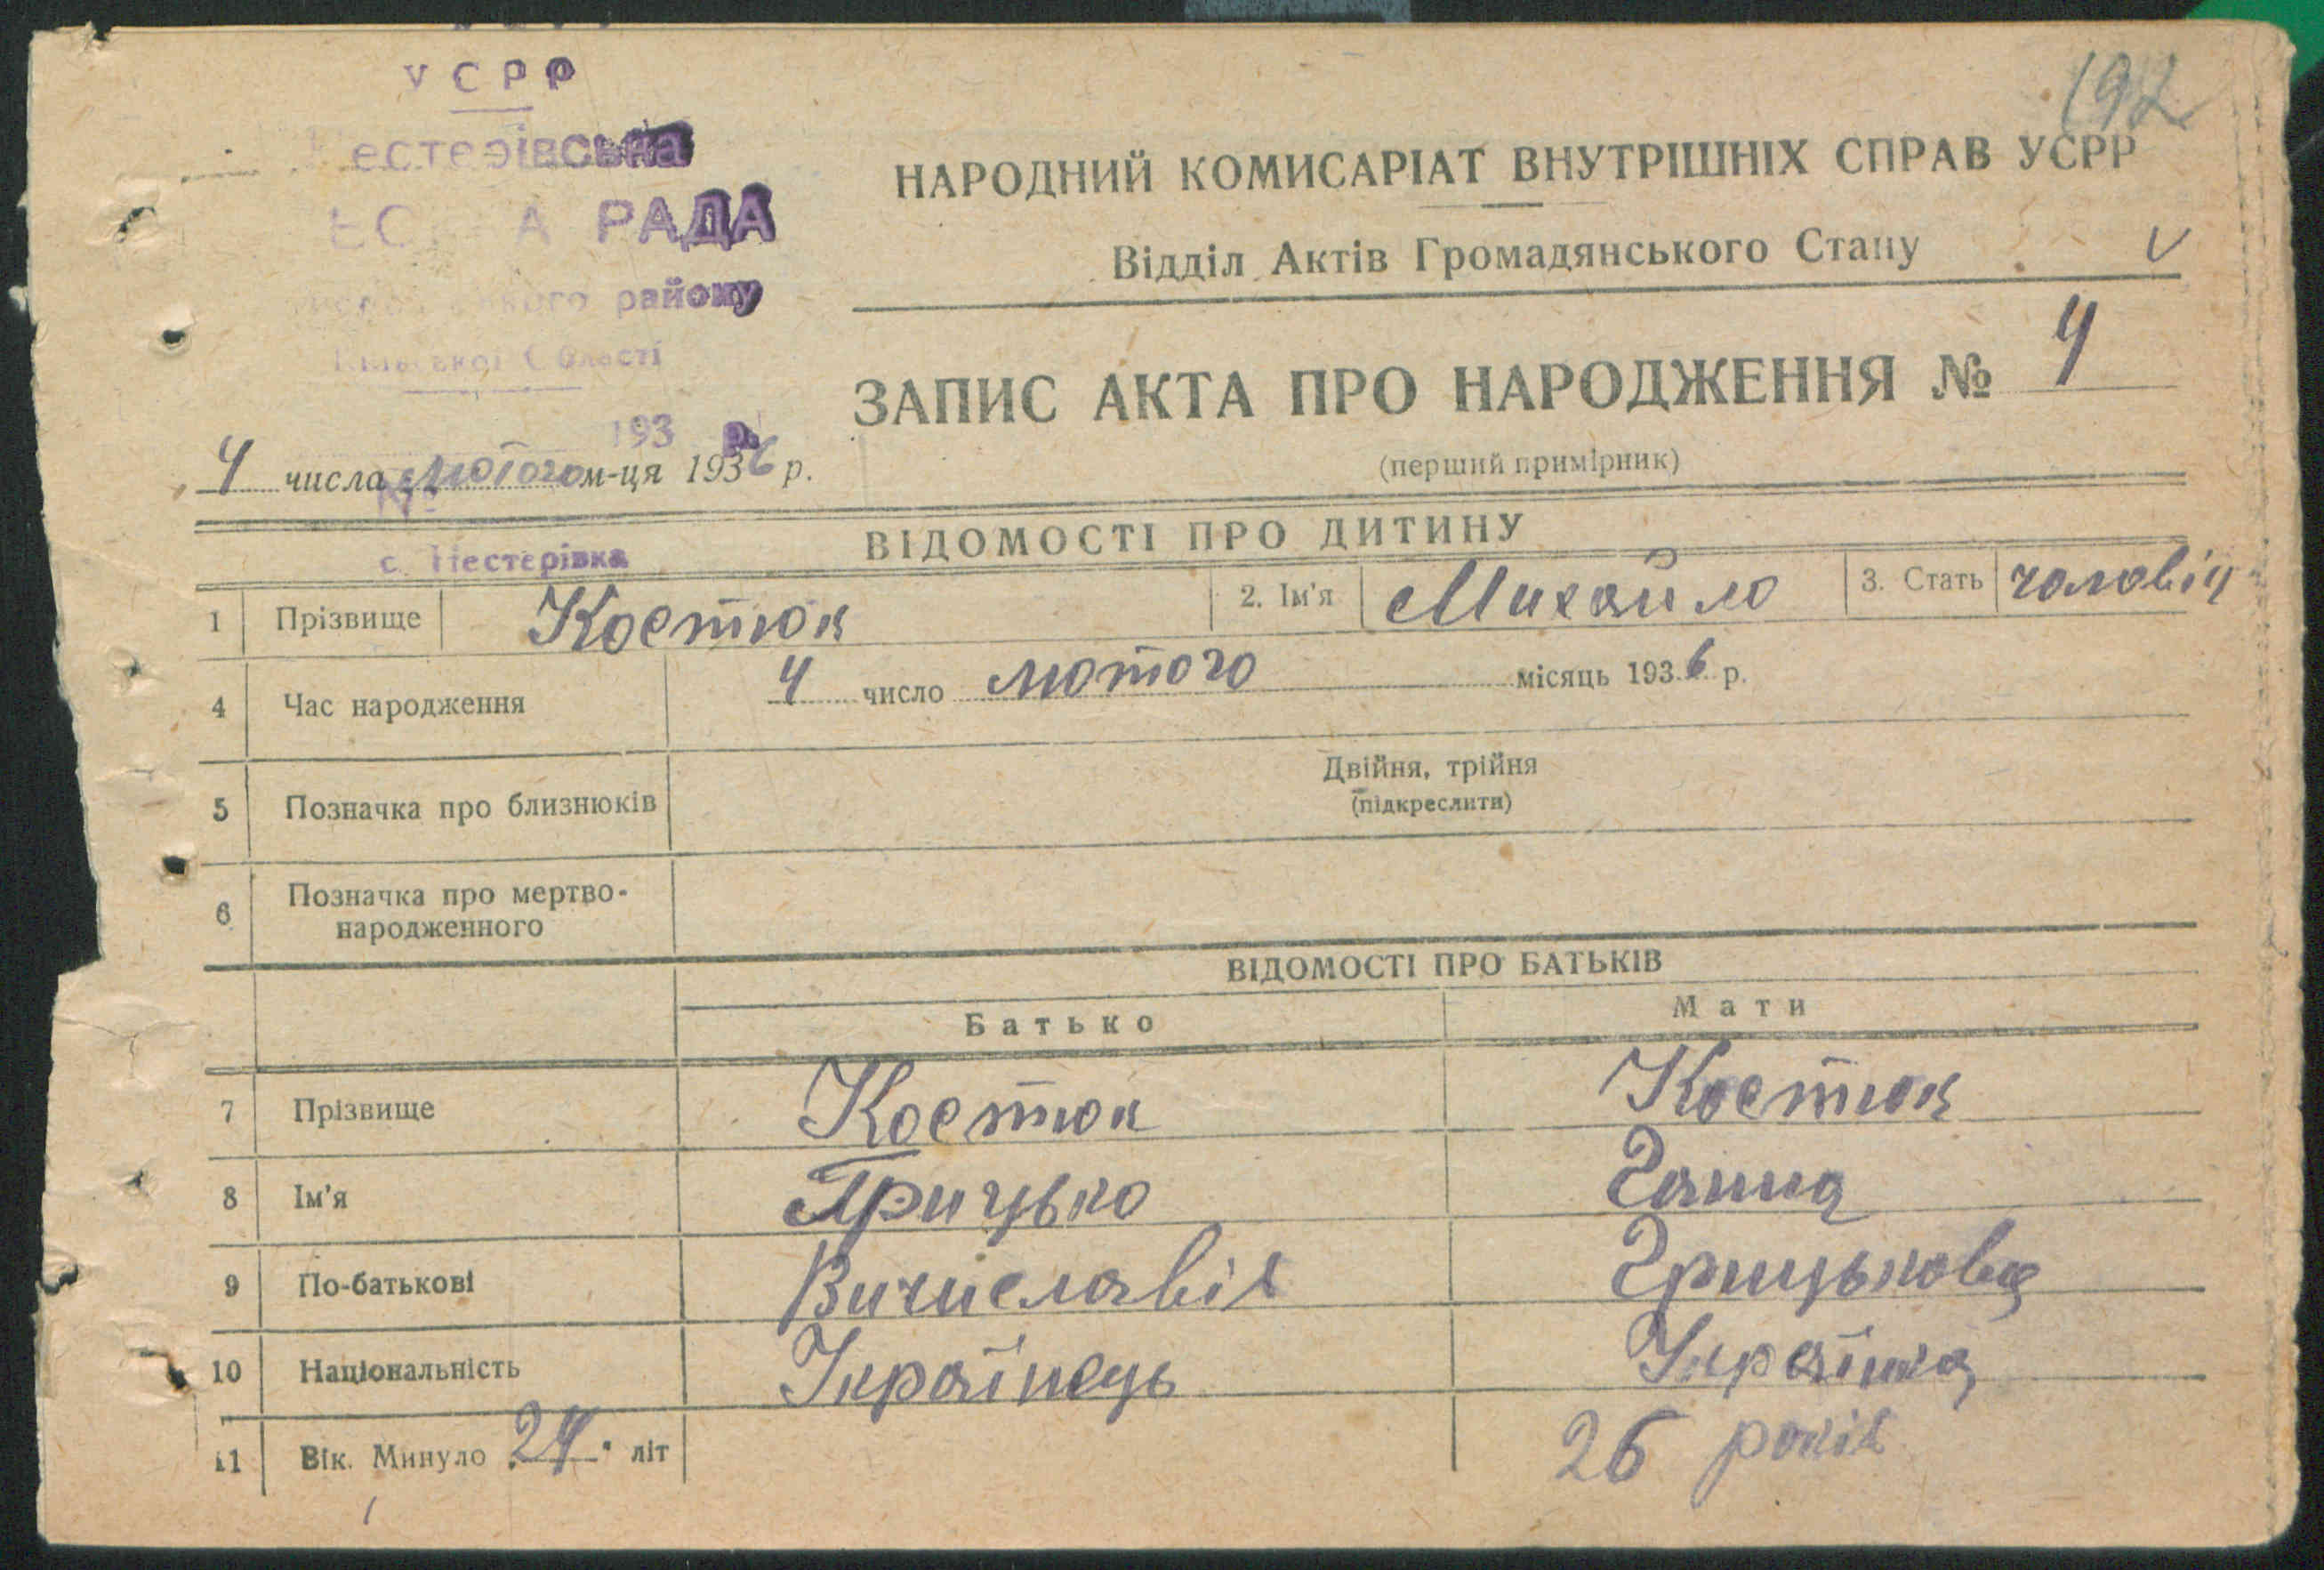 УСРР
естерівська
РАДА
району
Області
193 р.
№
с. Нестерівка
192
НАРОДНИЙ КОМИСАРІАТ ВНУТРІШНІХ СПРАВ УСРР
Відділ Актів Громадянського Стану V
ЗАПИС АКТА ПРО НАРОДЖЕННЯ № 4
(перший примірник)
4 числа лютого м-ця 1936 р.
ВІДОМОСТІ ПРО ДИТИНУ
1 Прізвище Костюк 2. Ім'я Михайло 3. Стать чоловіч
4 Час народження 4 число лютого місяць 1936 р.
5 Позначка про близнюків Двійня, трійня
(підкреслити)
6 Позначка про мертво-
народженного
ВІДОМОСТІ ПРО БАТЬКІВ
Батько Мати
7 Прізвище Костюк Костюк
8 Ім'я Грицько Ганна
9 По-батькові Вичиславів Грицькова
10 Національність Українець Українка
11 Вік. Минуло 24 літ 26 років